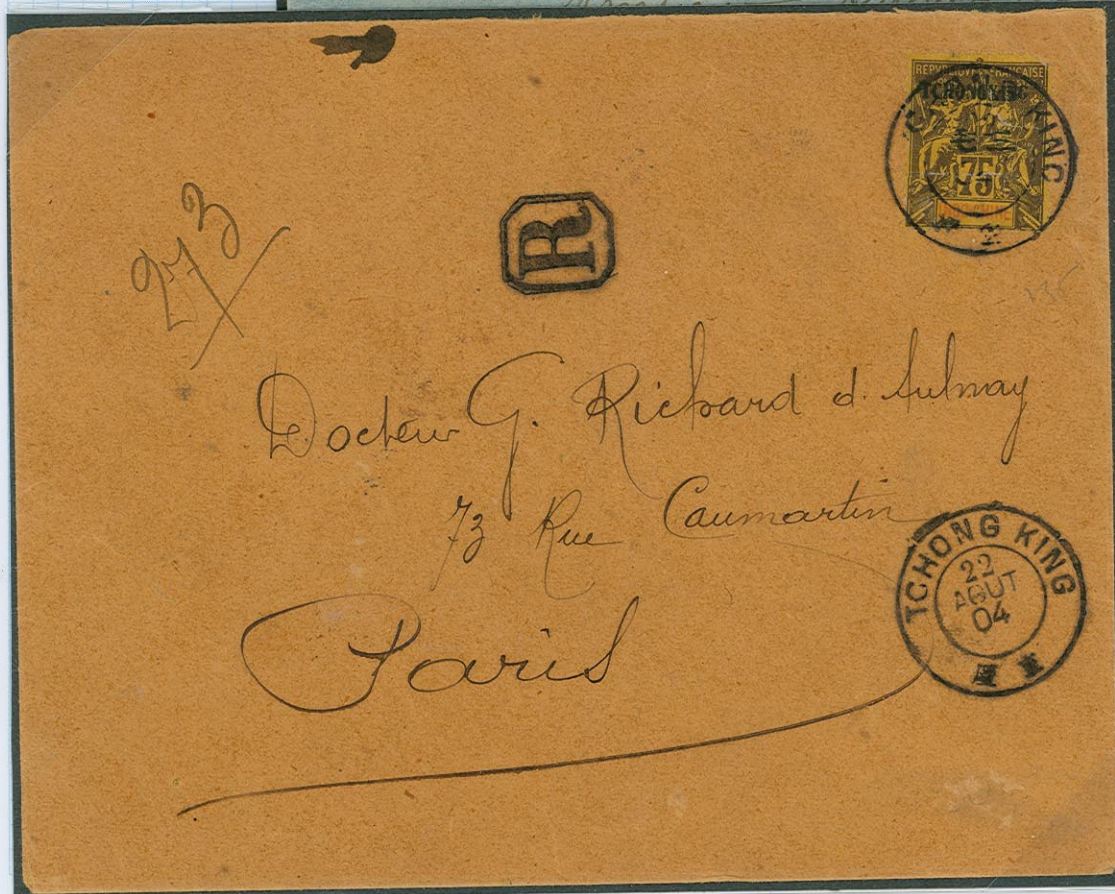 REPVBLIQVE FRANÇAISE
TCHONGKING
75
TCHONG KING
R
273
Docteur G. Richard d'Aulnay
73 Rue Caumartin
Paris
TCHONG KING
22
AOUT
04
慶 重